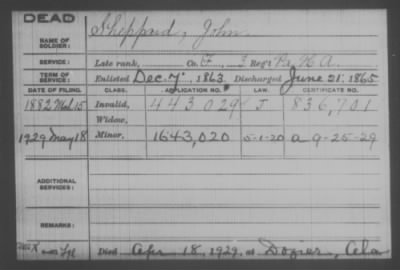 DEAD
NAME OF SOLDIER: Sheppard, John
SERVICE: Late rank, Co. F, 3 Reg't Pa. H.A.
TERM OF SERVICE: Enlisted Dec. 7, 1863 Discharged June 21, 1865
DATE OF FILING. CLASS. APPLICATION NO. LAW. CERTIFICATE NO.
1882 15 Invalid, 443029 J 836,701
Widow,
1929 May 18 Minor, 1643,020 5-1-20 a 9-25-29
ADDITIONAL SERVICES:
REMARKS:
Died Apr 18, 1929, at Dozier, Ala